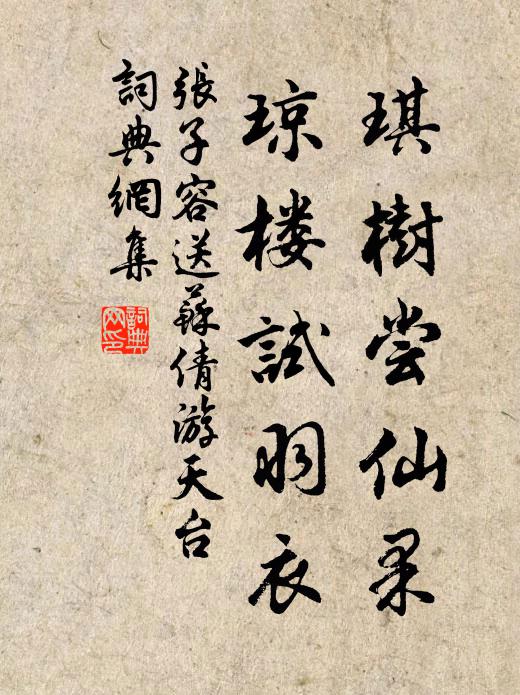 琪樹嘗仙果
琼楼試羽衣
張子容送蘇倩游天台
詞典網集
詞典网印